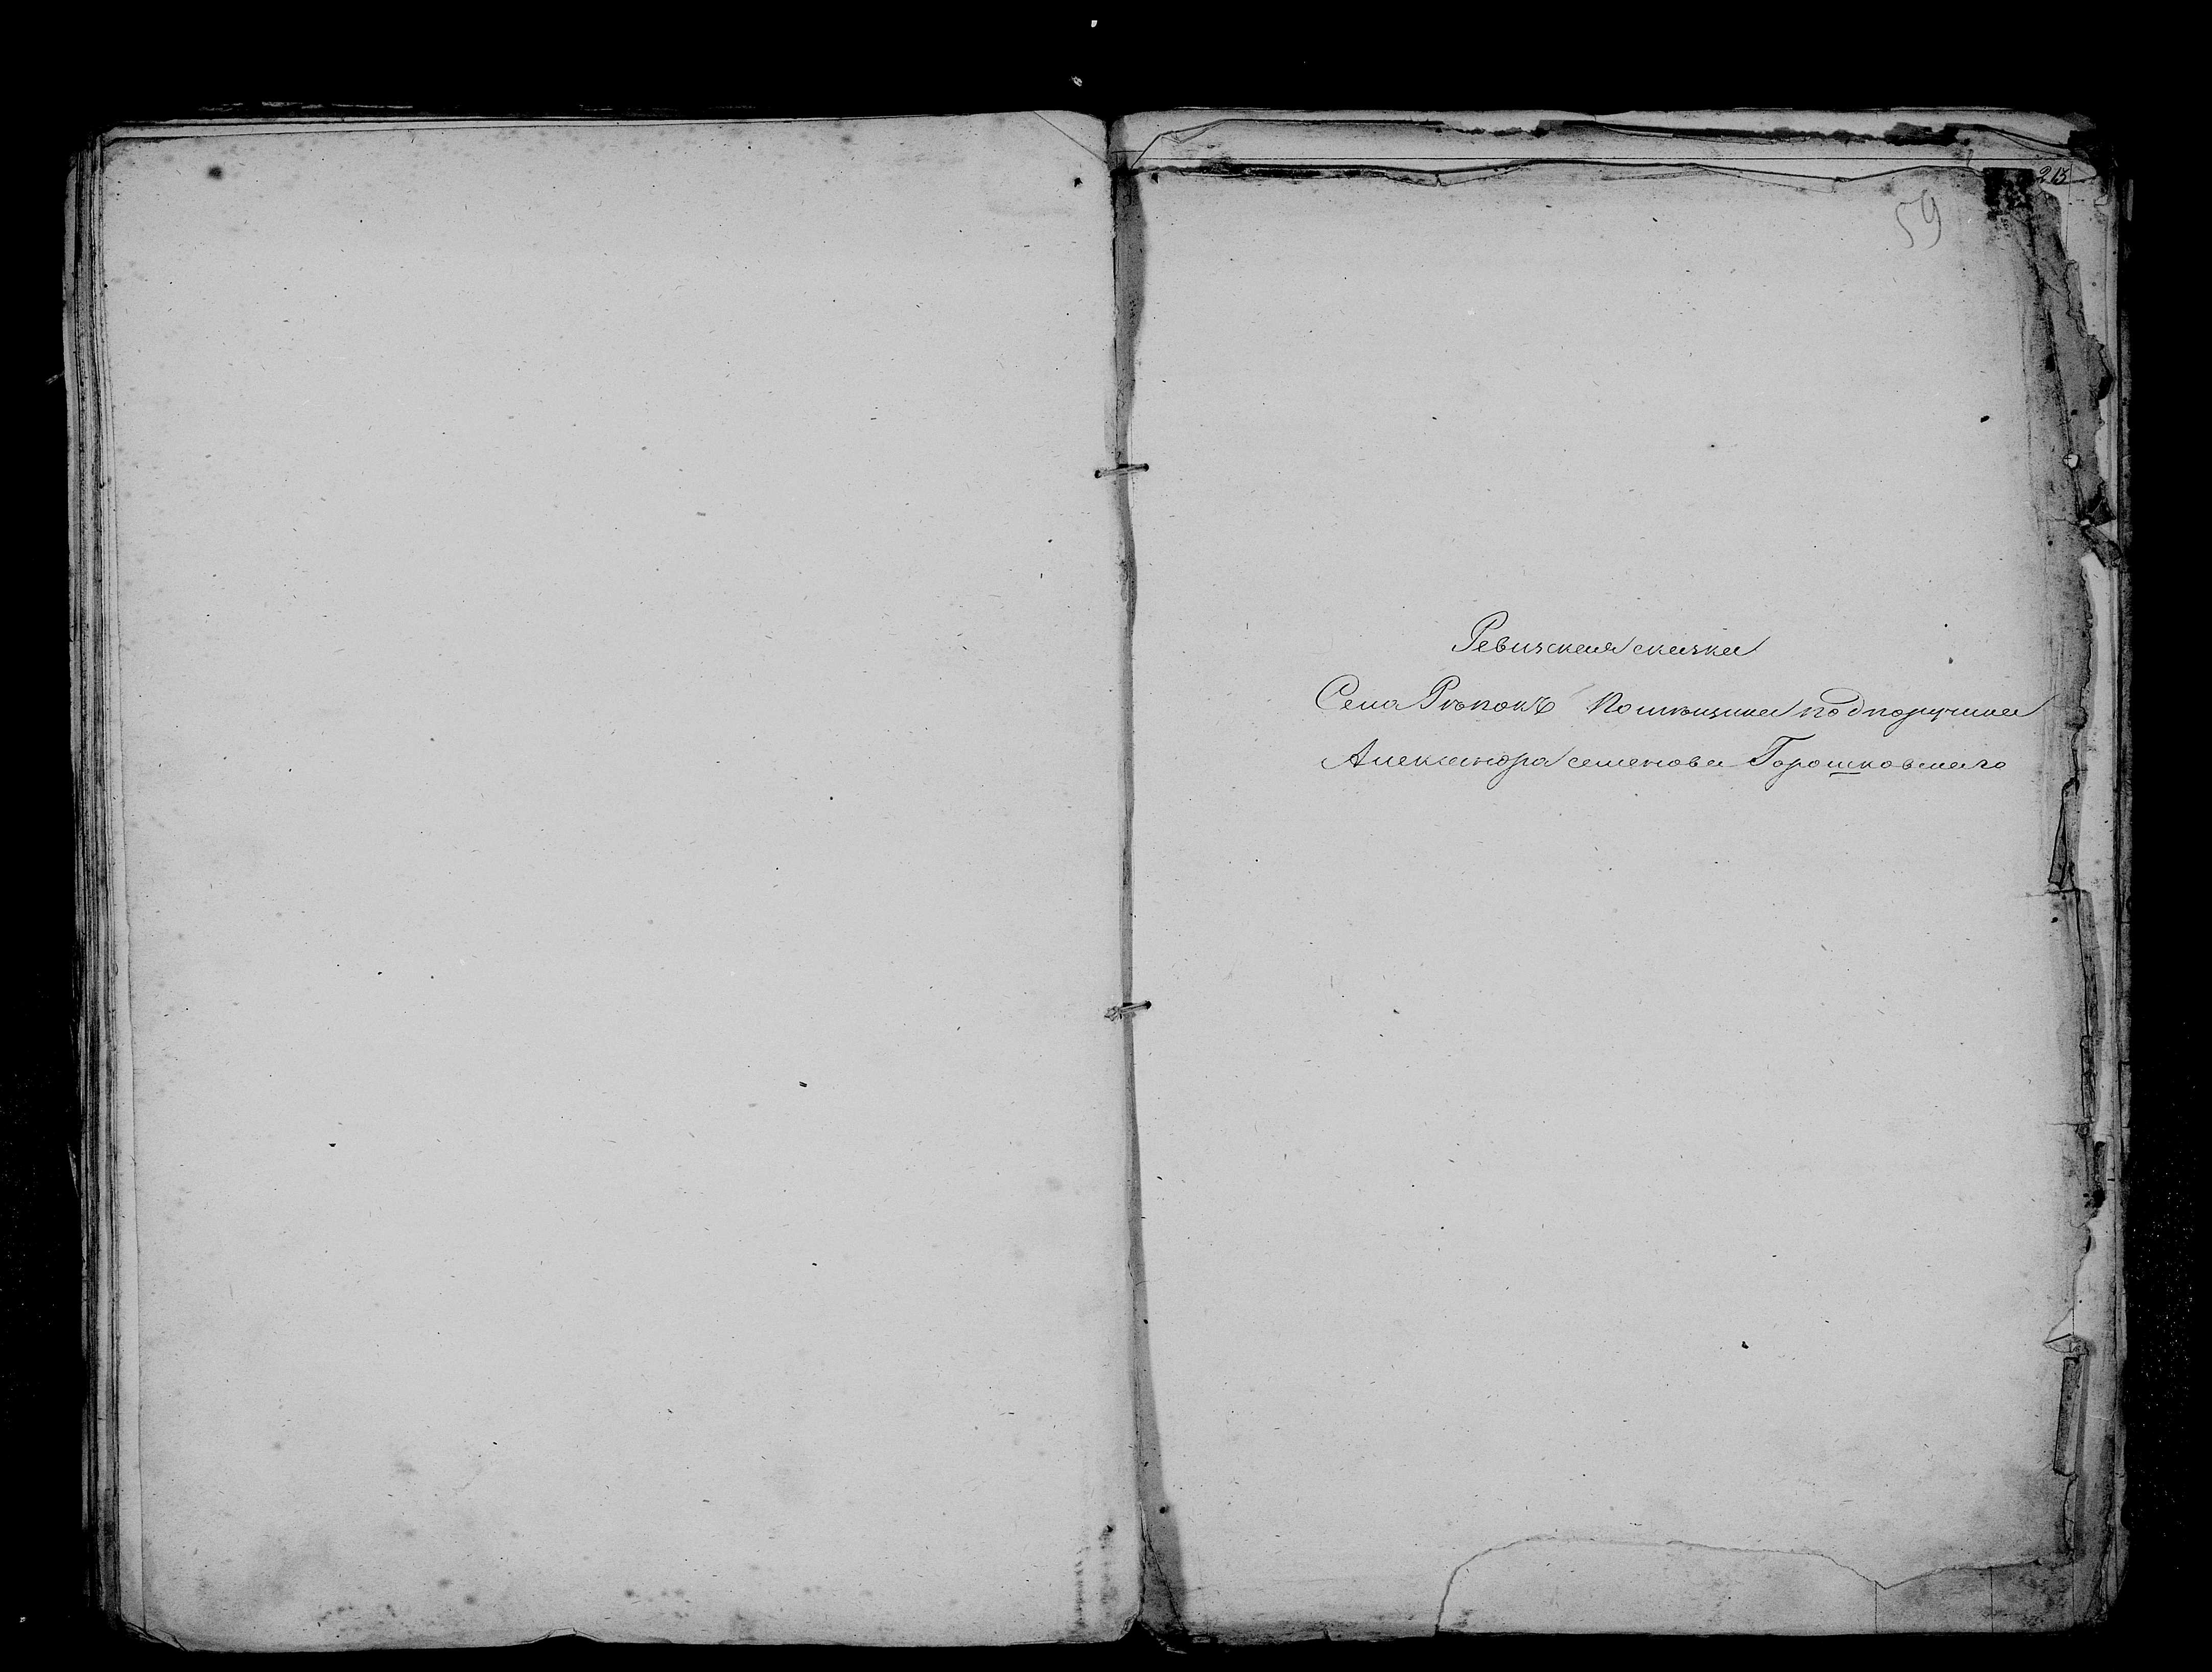 213
59
Ревизская сказка
Села Рѣпокъ Помѣщика подпоручика
Александра семенова Горошковскаго